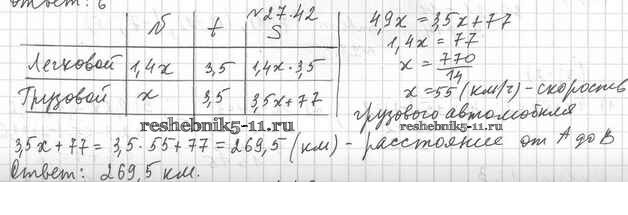 Ответ: 6
№27.42
v t S
Легковой 1,4x 3,5 1,4x·3,5
Грузовой x 3,5 3,5x+77
4,9x = 3,5x+77
1,4x = 77
x = 770/14
x = 55 (км/ч) – скорость
грузового автомобиля
reshebnik5-11.ru
reshebnik5-11.ru
3,5x + 77 = 3,5·55 + 77 = 269,5 (км) – расстояние от A до B
Ответ: 269,5 км.